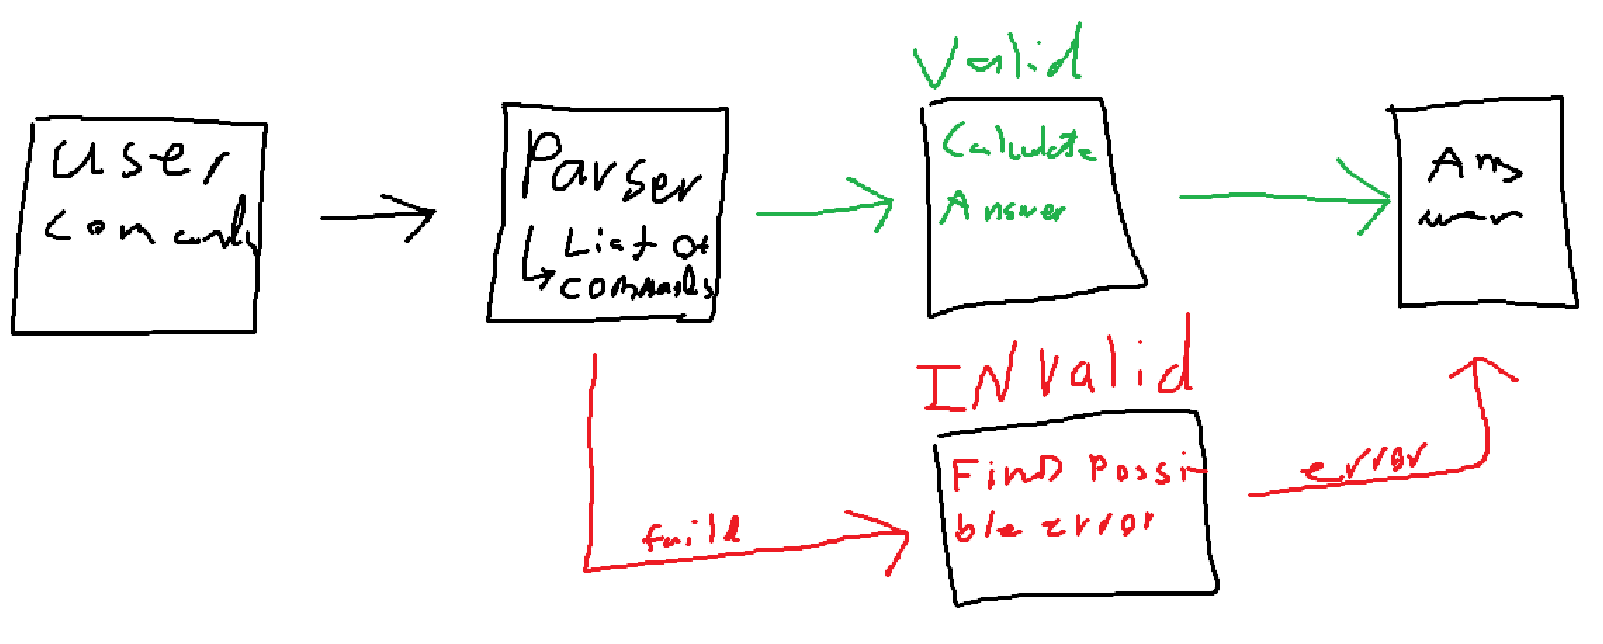 user
comands
Parser
List of
commands
Valid
Calculate
Answer
Ans
wer
INvalid
FinD Possi-
ble error
faild
error